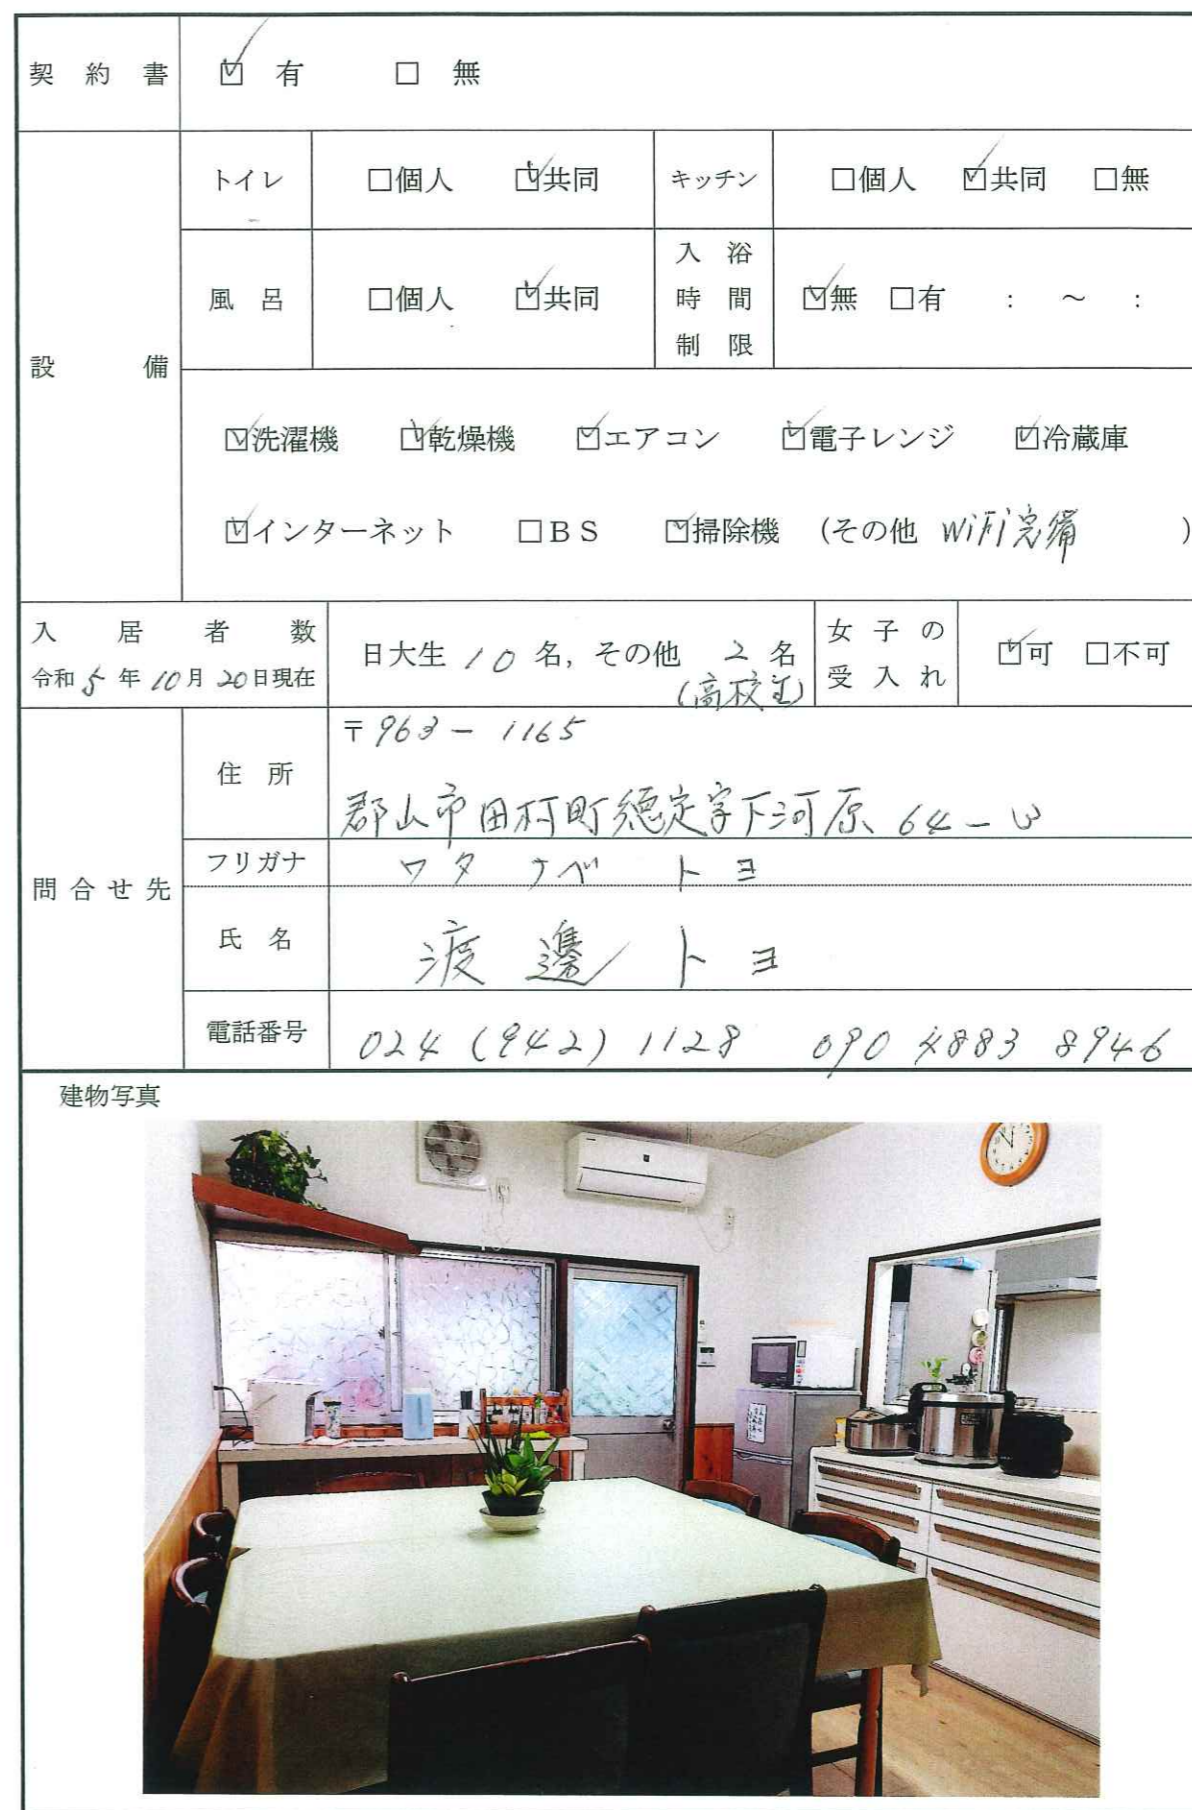 契約書 ☑有 □無
設備
トイレ □個人 ☑共同 キッチン □個人 ☑共同 □無
風呂 □個人 ☑共同 入浴時間制限 ☑無 □有 : ～ :
☑洗濯機 ☑乾燥機 ☑エアコン ☑電子レンジ ☑冷蔵庫
☑インターネット □BS ☑掃除機 (その他 WiFi完備 )
入居者数 日大生 10 名, その他 2 名 女子の受入れ ☑可 □不可
令和5年10月20日現在 (高校生)
問合せ先
〒963-1165
住所 郡山市田村町徳定字下河原 64-3
フリガナ ワタナベ トヨ
氏名 渡邊 トヨ
電話番号 024 (942) 1128 090 4883 8946
建物写真